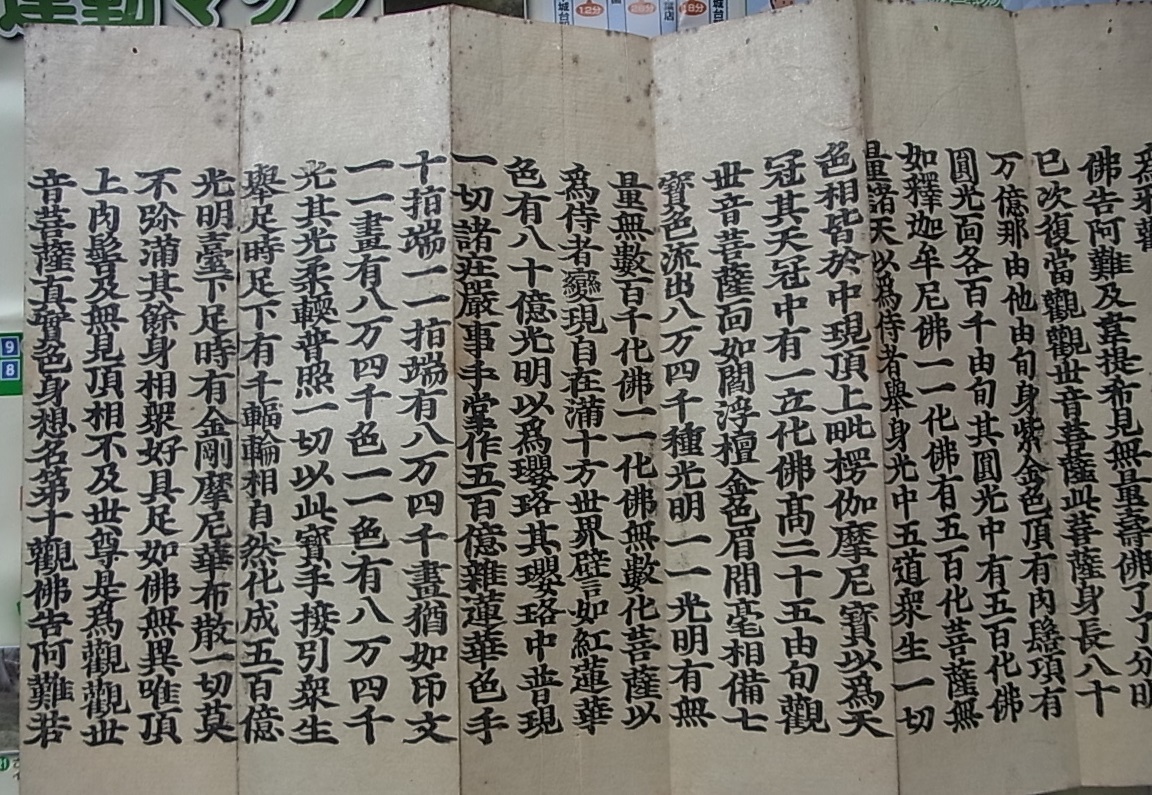 運動マップ
12分
28分
18分
爲邪觀
佛告阿難及韋提希見無量壽佛了了分明
已次復當觀觀世音菩薩此菩薩身長八十
万億那由他由旬身紫金色頂有肉髻項有
圓光面各百千由旬其圓光中有五百化佛
如釋迦牟尼佛一一化佛有五百化菩薩無
量諸天以爲侍者擧身光中五道衆生一切
色相皆於中現頂上毗楞伽摩尼寶以爲天
冠其天冠中有一立化佛高二十五由旬觀
世音菩薩面如閻浮檀金色眉間毫相備七
寶色流出八万四千種光明一一光明有無
量無數百千化佛一一化佛無數化菩薩以
爲侍者變現自在滿十方世界譬言如紅蓮華
色有八十億光明以爲瓔珞其瓔珞中普現
一切諸莊嚴事手掌作五百億雜蓮華色手
十指端一一指端有八万四千畫猶如印文
一一畫有八万四千色一一色有八万四千
光其光柔輭普照一切以此寶手接引衆生
擧足時足下有千輻輪相自然化成五百億
光明臺下足時有金剛摩尼華布散一切莫
不弥滿其餘身相衆好具足如佛無異唯頂
上肉髻及無見頂相不及世尊是爲觀觀世
音菩薩真實色身想名第十觀佛告阿難若
9
8